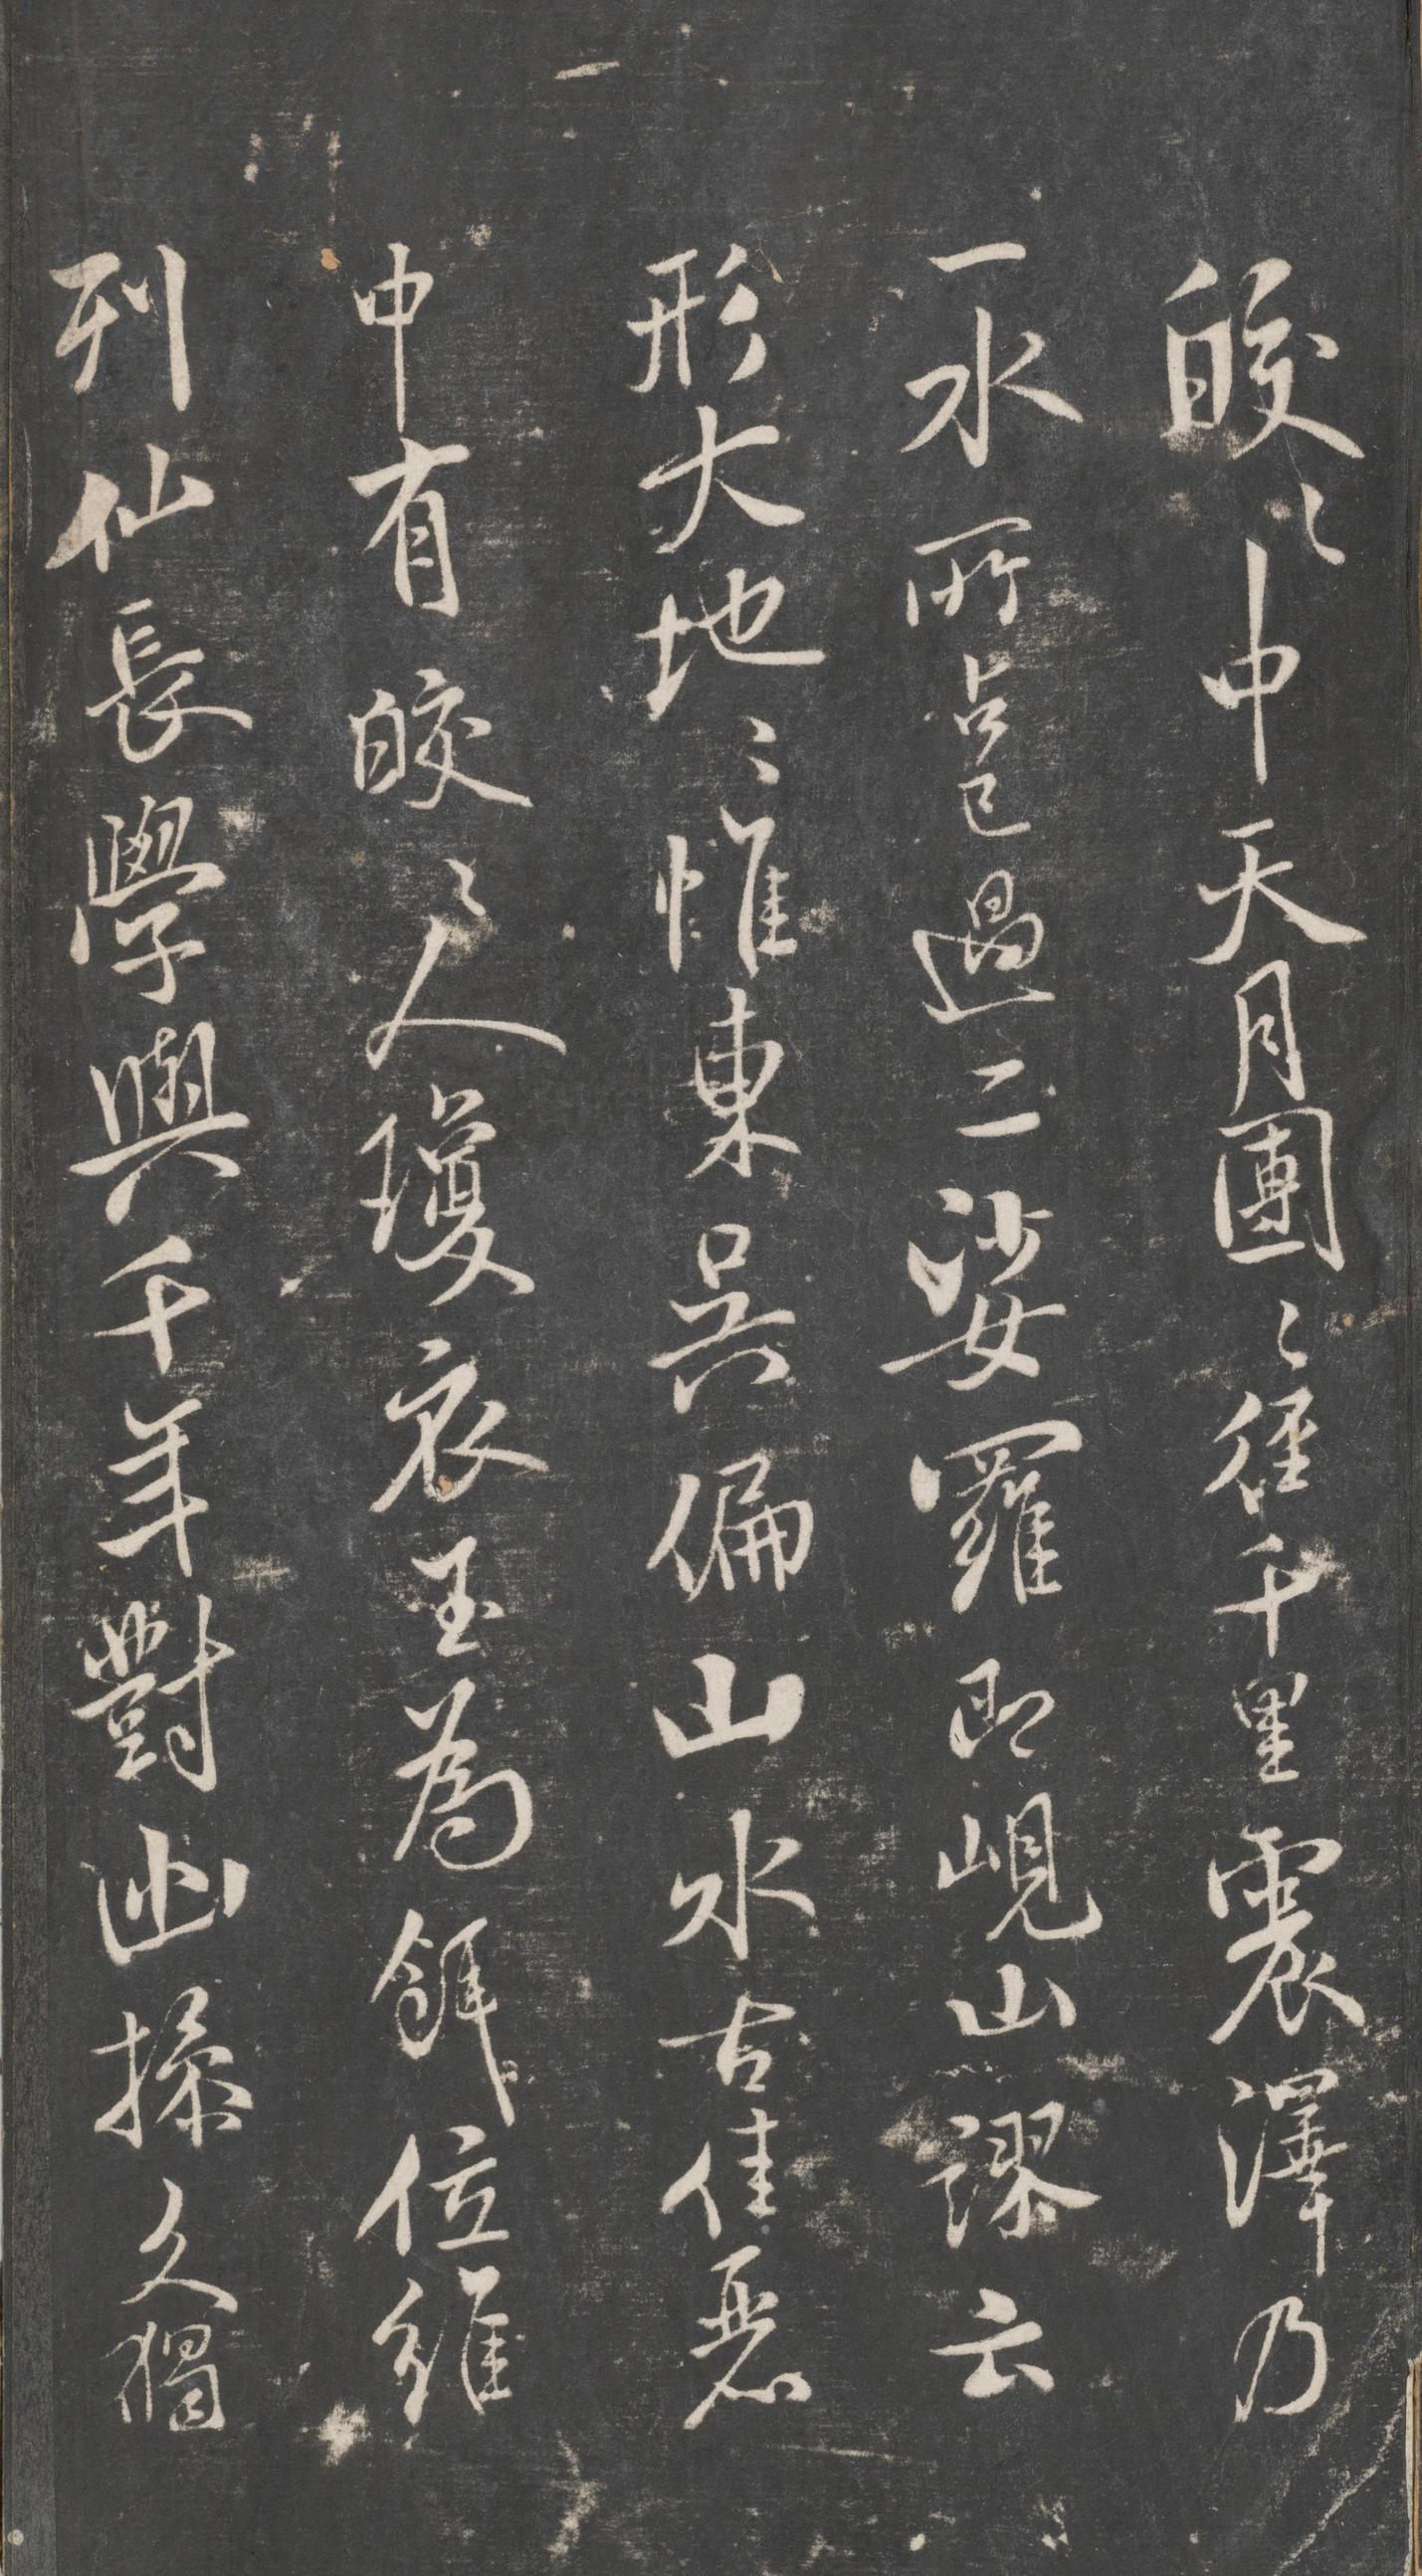 皎〻中天月團〻徑千里震澤乃
一水所占已過二娑羅即峴山謬云
形大地〻惟東吳偏山水古佳麗
中有皎〻人瓊衣玉為餌位維
列仙長學與千年對幽操久獨